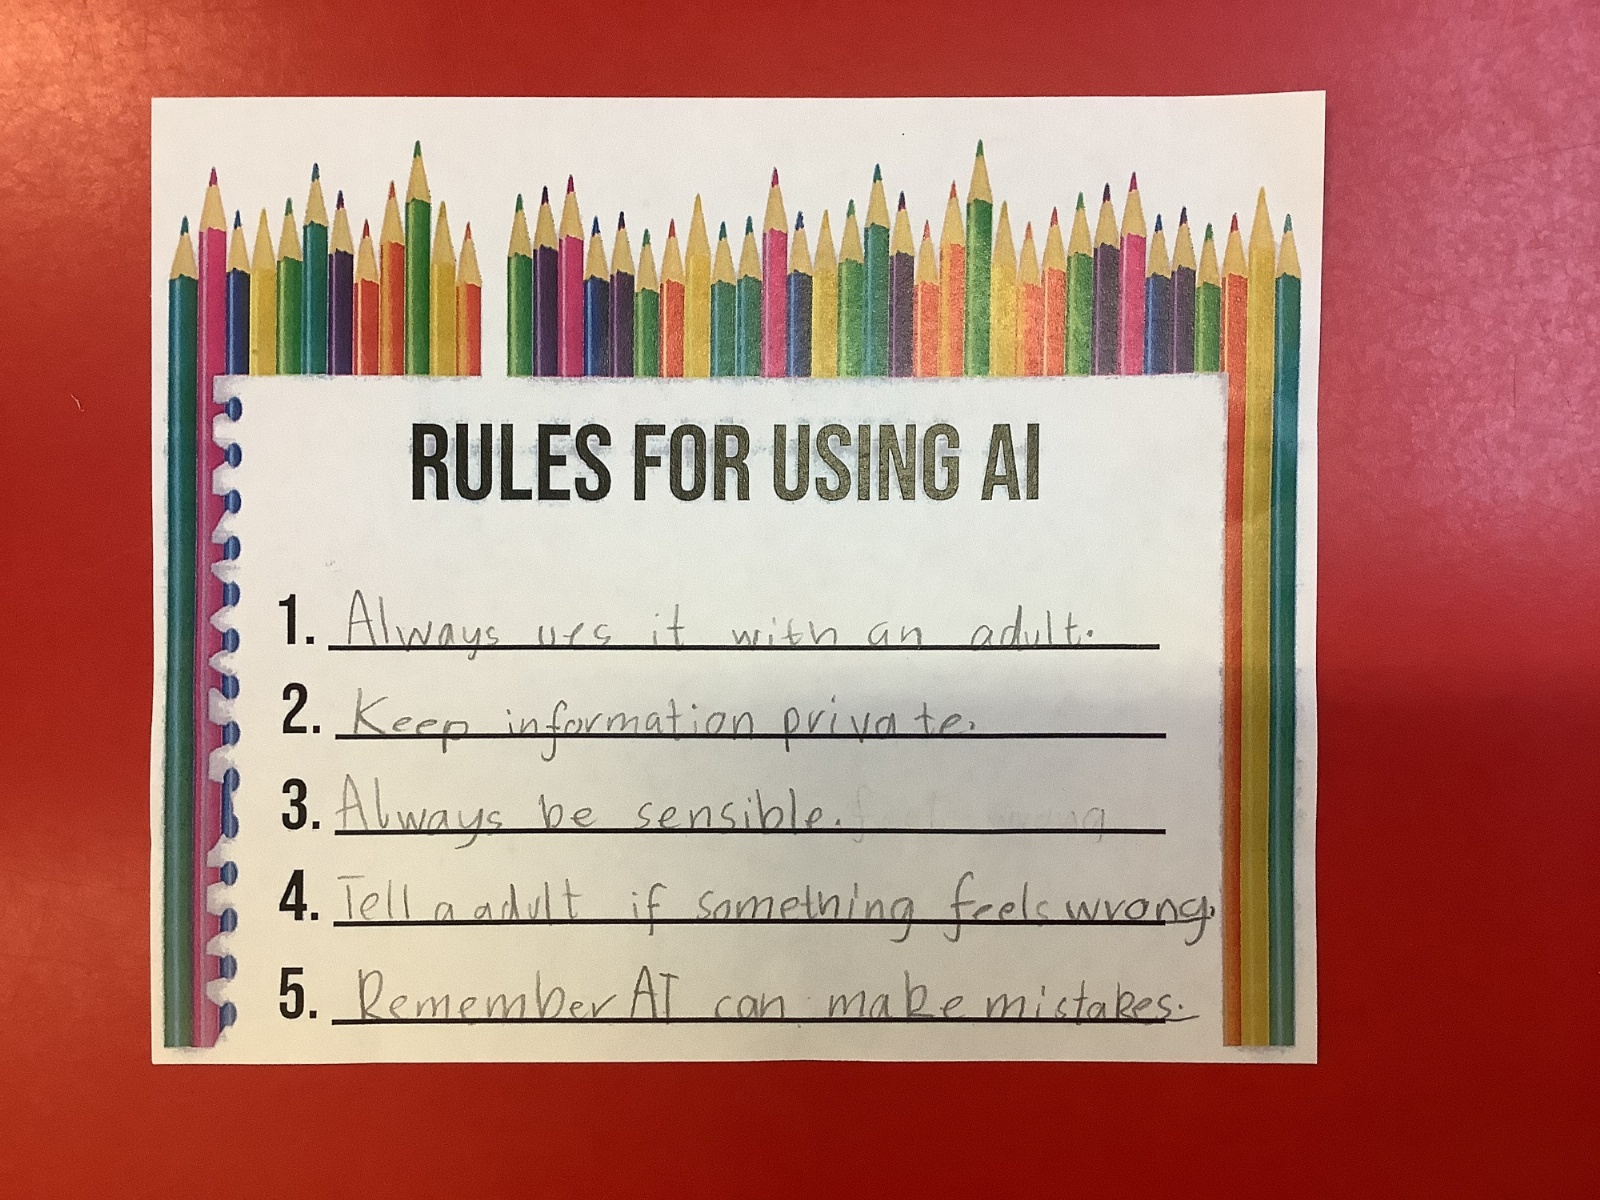 RULES FOR USING AI
1. Always ues it with an adult.
2. Keep information private.
3. Always be sensible.
4. Tell a adult if something feels wrong.
5. Remember AI can make mistakes.